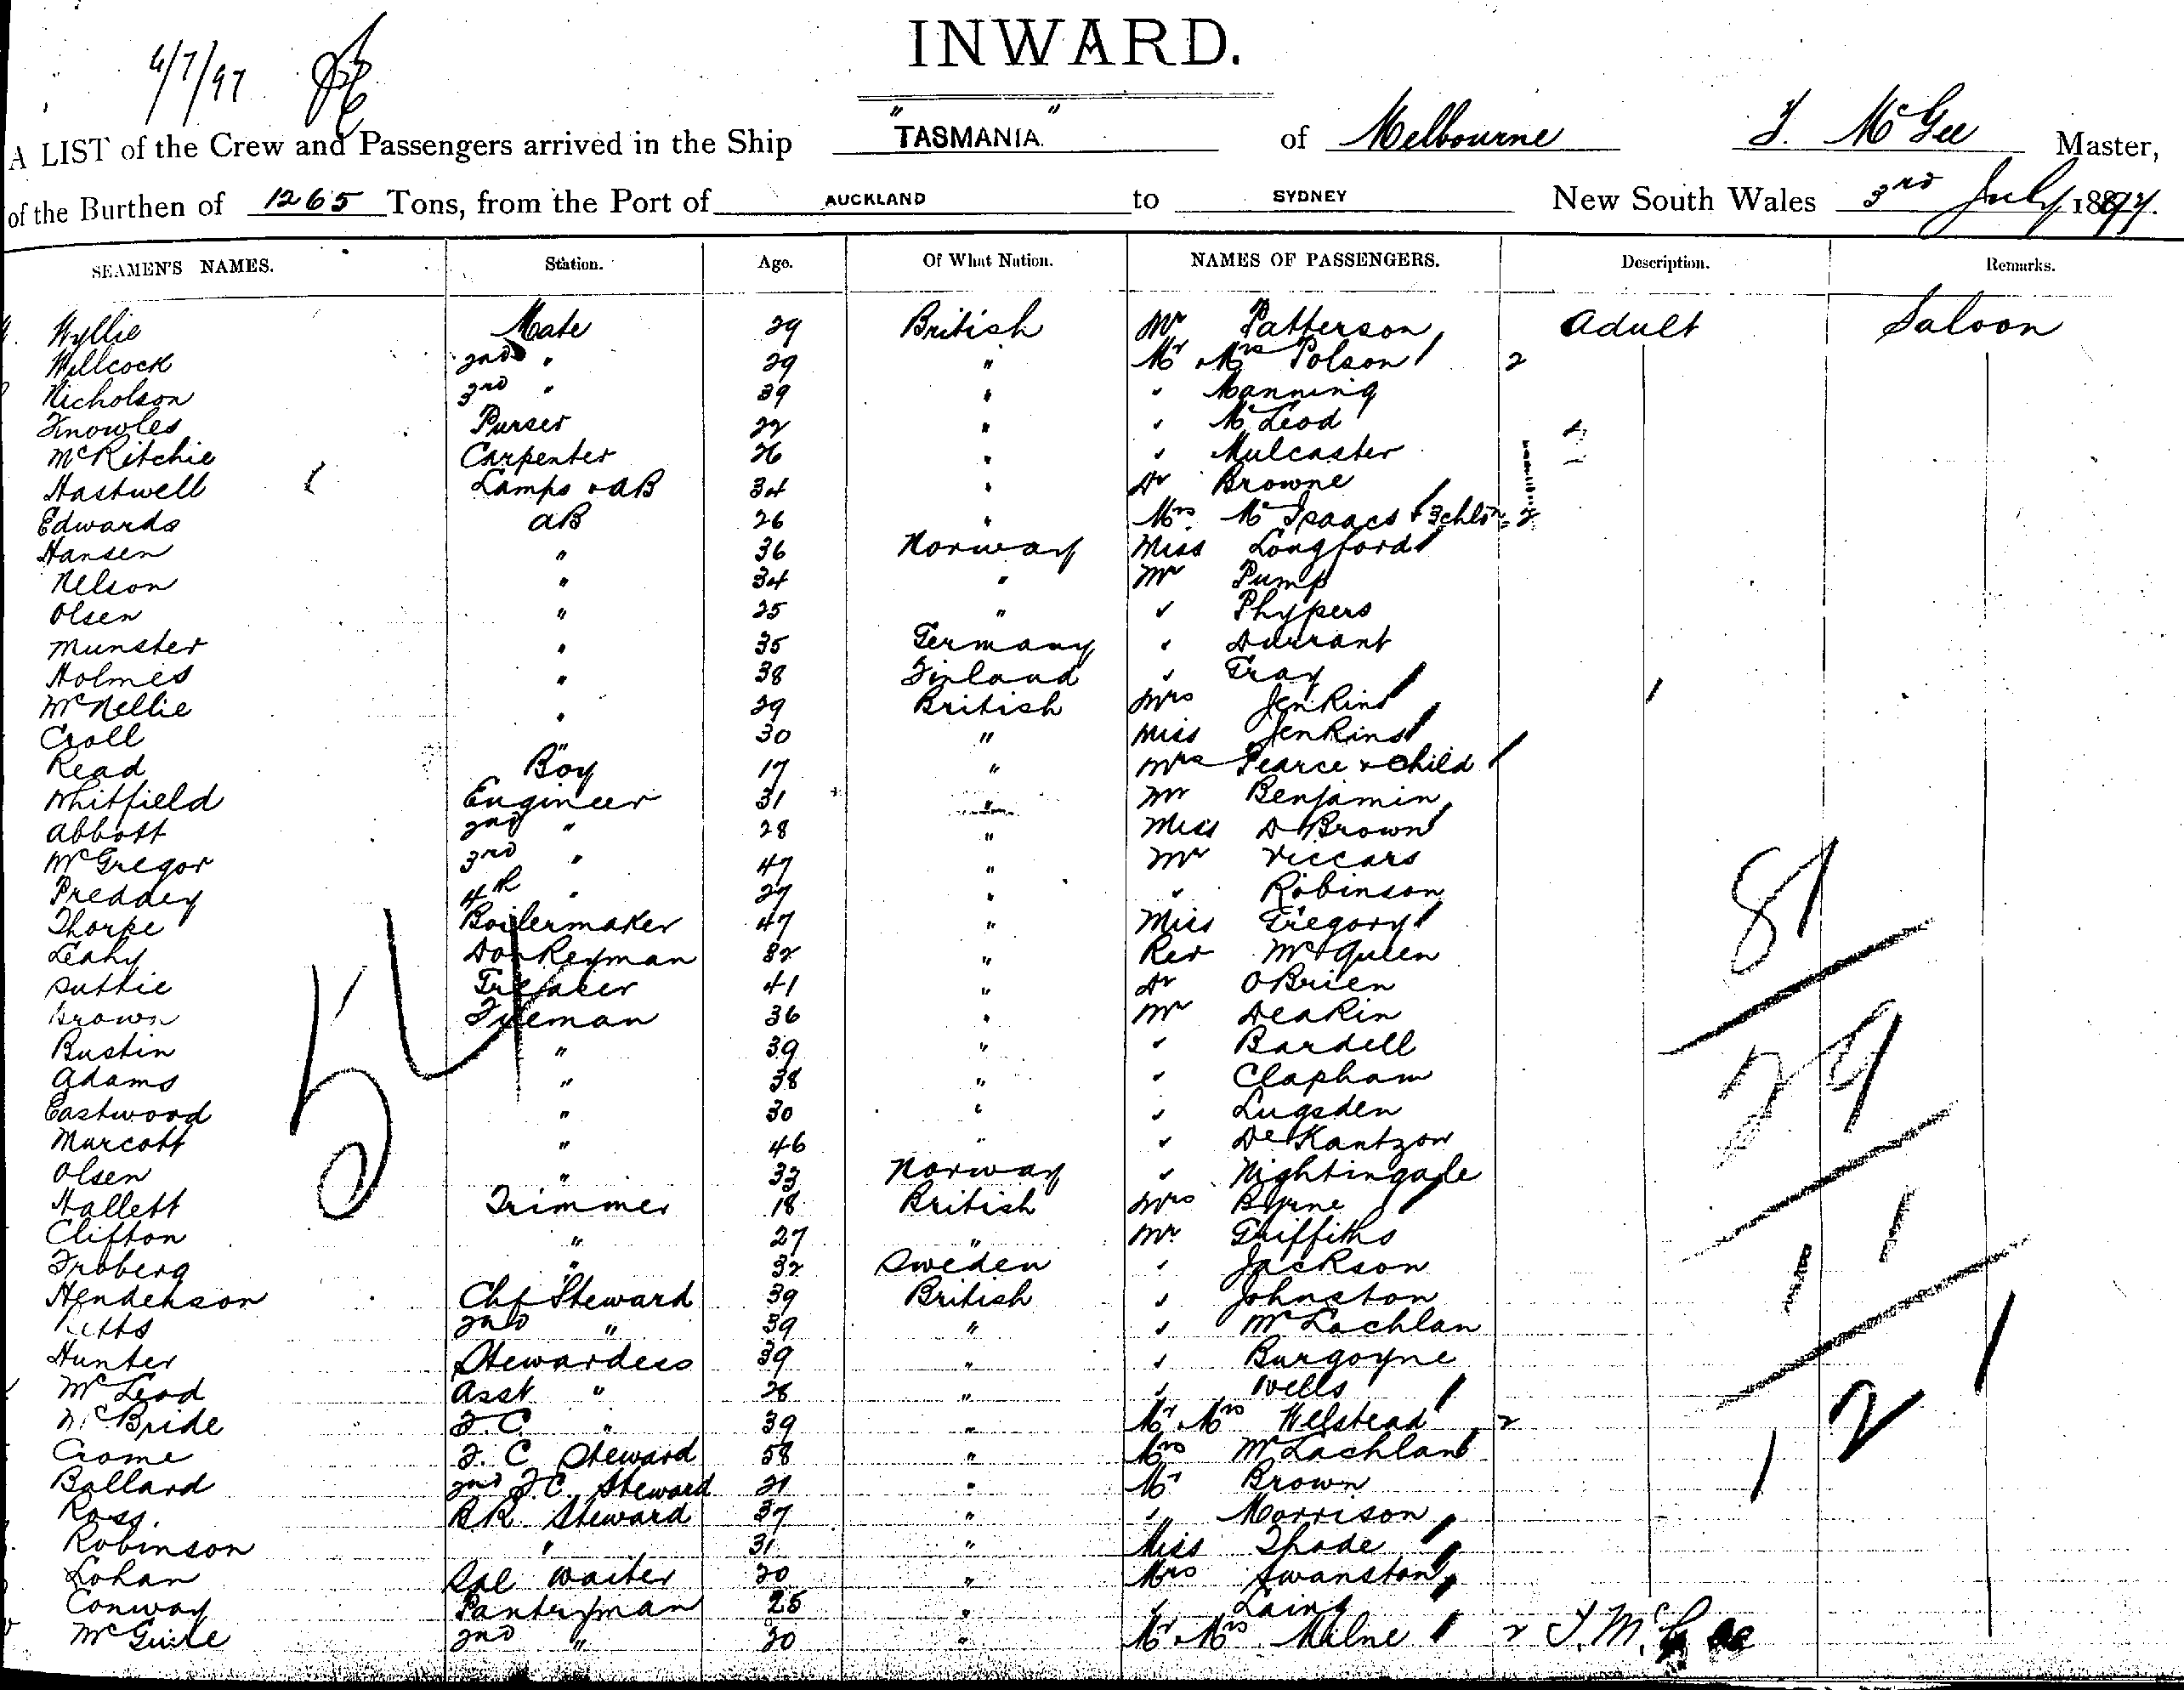 INWARD.
6/7/97
A LIST of the Crew and Passengers arrived in the Ship "TASMANIA" of Melbourne T. McGee Master,
of the Burthen of 1265 Tons, from the Port of AUCKLAND to SYDNEY New South Wales 3rd July 1897.
SEAMEN'S NAMES. Station. Age. Of What Nation. NAMES OF PASSENGERS. Description. Remarks.
Wyllie Mate 29 British Mr Patterson Adult Saloon
Willcock 2nd " 29 " Mr & Mrs Polson 2
Nicholson 3rd " 39 " " Manning
Knowles Purser 22 " " McLeod
McRitchie Carpenter 26 " " Mulcaster
Hastwell Lamps & AB 34 " Dr Browne
Edwards AB 26 " Mrs McIsaacs & 3 chldn 2
Hansen " 36 Norway Miss Longford
Nelson " 34 " Mr Pump
Olsen " 25 " " Phypers
Munster " 35 Germany " Durrant
Holmes " 38 Finland " Gray
McNellie " 29 British Mrs Jenkins
Croll " 30 " Miss Jenkins
Read Boy 17 " Mrs Pearce & Child
Whitfield Engineer 31 " Mr Benjamin
Abbott 2nd " 28 " Miss D Brown
McGregor 3rd " 47 " Mr Viccars
Preddey 4th " 27 " " Robinson
Thorpe Boilermaker 47 " Miss Gregory
Leahy Donkeyman 32 " Rev McQueen
Suttie Greaser 41 " Dr OBrien
Brown Fireman 36 " Mr Deakin
Bustin " 39 " " Bardell
Adams " 38 " " Clapham
Eastwood " 30 " " Lugsden
Murcott " 46 " " De Kantzow
Olsen " 33 Norway " Nightingale
Hallett Trimmer 18 British Mrs Byrne
Clifton " 27 " Mr Griffiths
Froberg " 32 Sweden " Jackson
Henderson Chf Steward 39 British " Johnston
2nd " 39 " " McLachlan
Hunter Stewardess 39 " " Burgoyne
McLeod Asst " 28 " " Wells
McBride F.C. " 39 " Mr & Mrs Welstead 2
Crome F.C. Steward 58 " Mrs McLachlan
Ballard 2nd F.C. Steward 21 " Mr Brown
Ross. BR Steward 37 " " Morrison
Robinson " 31 " Miss Thode
Lohan Sal Waiter 20 " Mrs Swanston
Conway Pantryman 25 " " Laing
McGuire 2nd " 20 " Mr & Mrs Milne 2 T. McGee
54
81
29
11
2
1
1